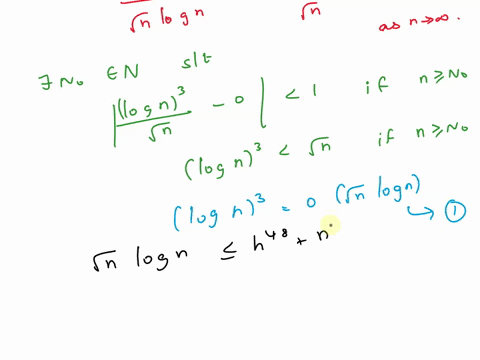 √n log n √n as n→∞.
∃ N₀ ∈ N s/t
|(log n)³/√n - 0| < 1 if n ≥ N₀
(log n)³ < √n if n ≥ N₀
(log n)³ = O (√n log n)
↳ ①
√n log n ≤ n⁴⁸ + n